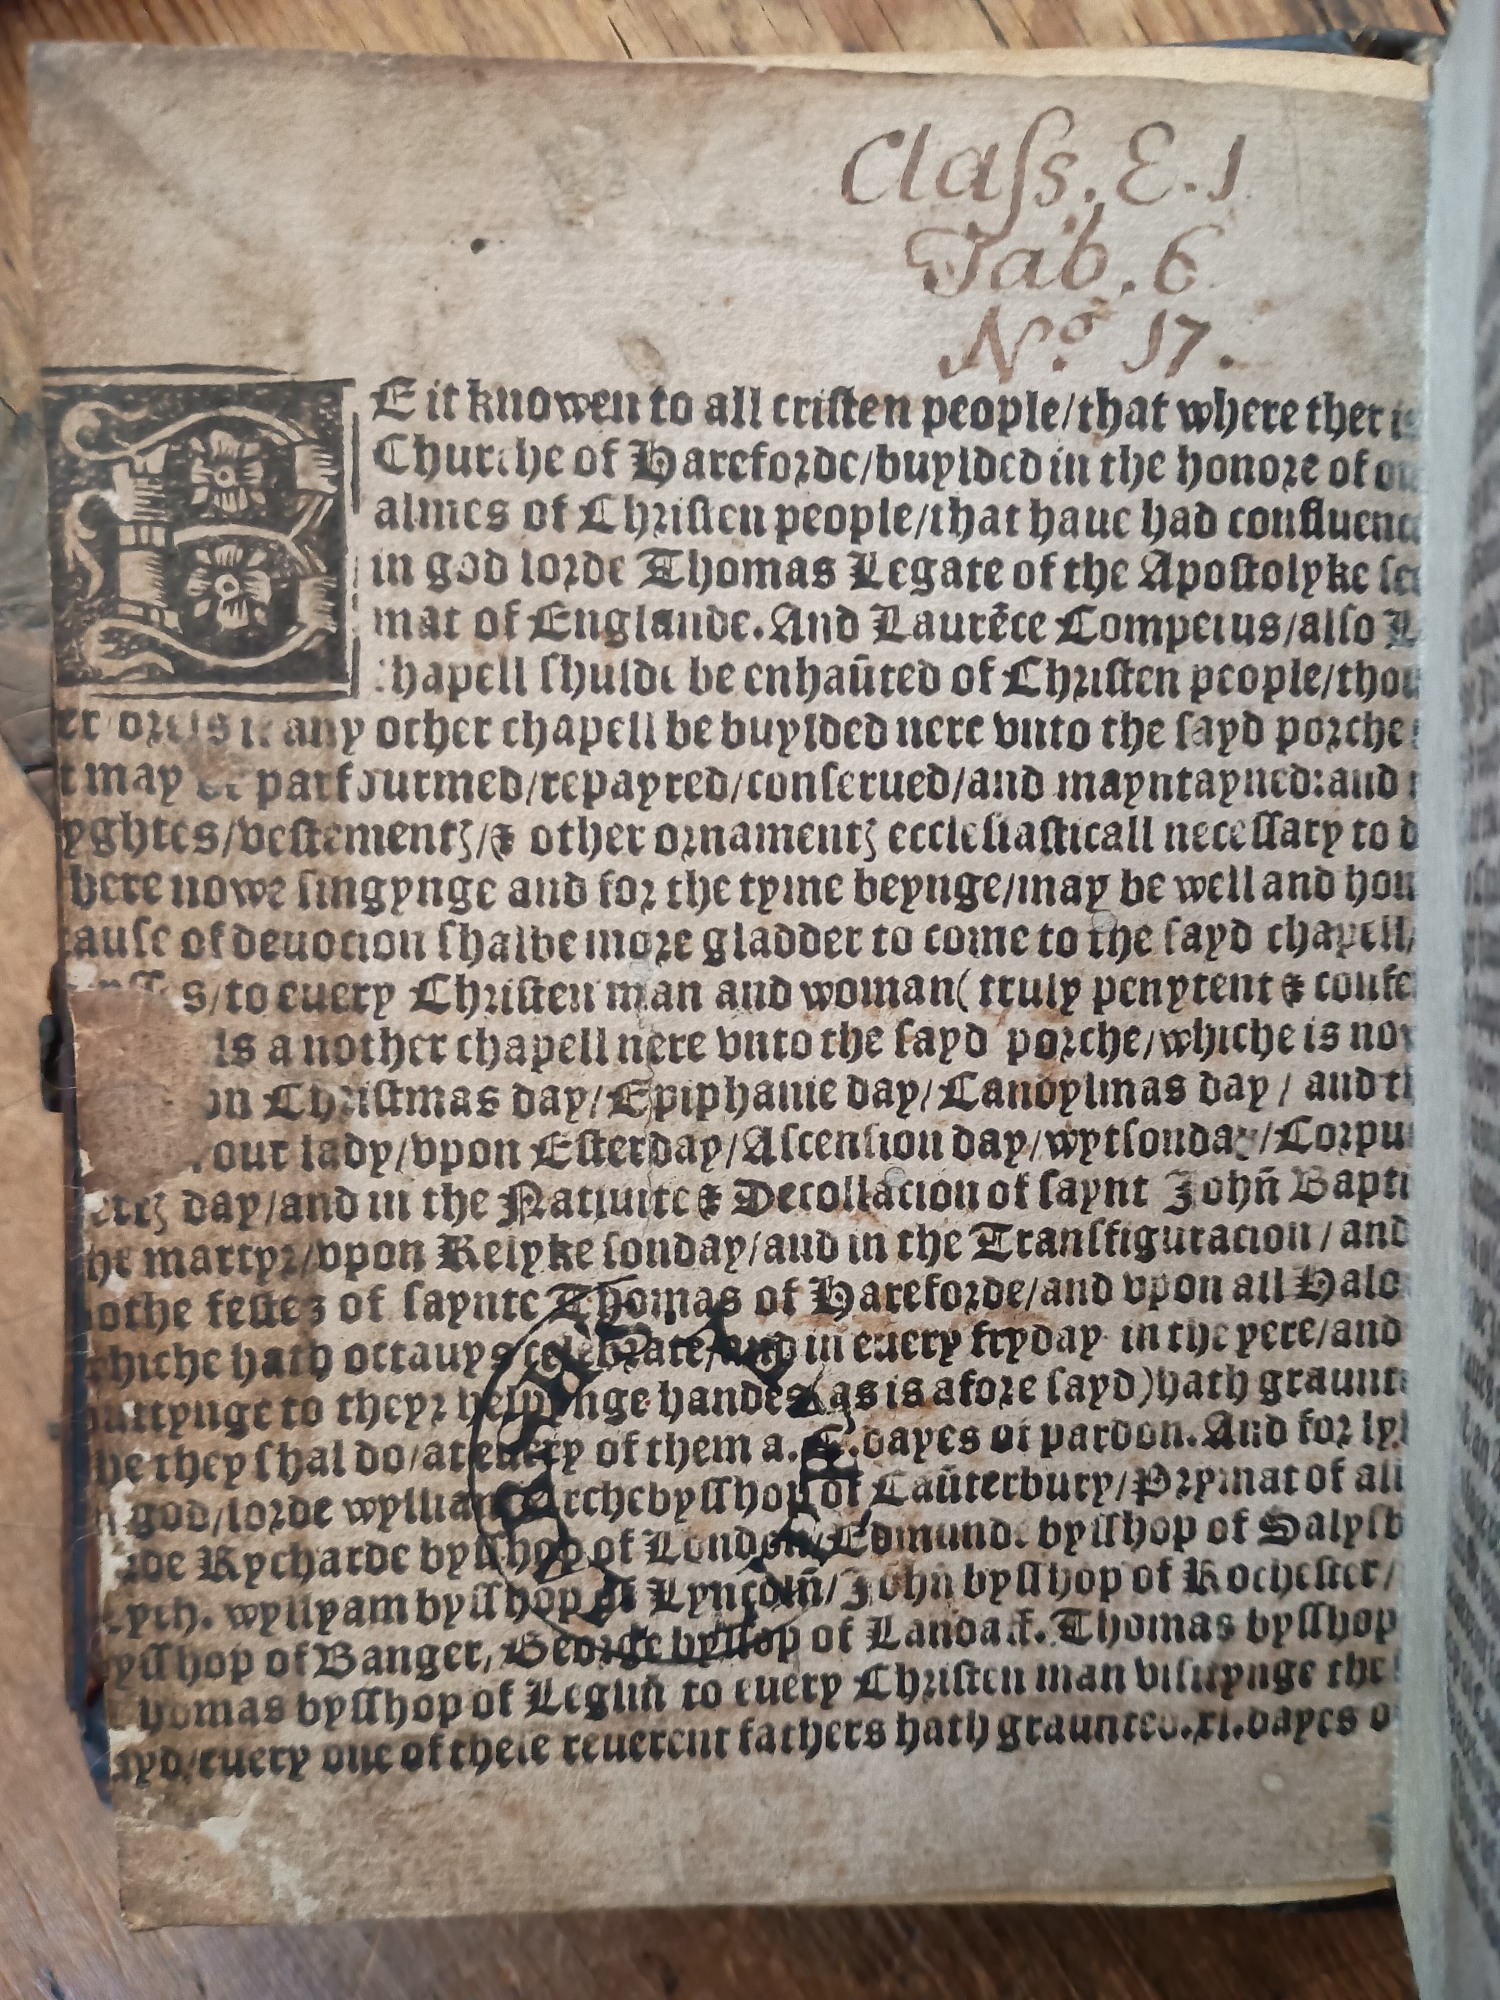 Claſs. E. 1
Tab. 6
No. 17.
BE it knowen to all criſten people/that where ther
Churche of Hareforde/buylded in the honore of
almes of Chriſten people/that haue had
in god lorde Thomas Legate of the Apoſtolyke
mat of Englande. And Laurēce Compeius/alſo
chapell ſhulde be enhaūted of Chriſten people/
any other chapell be buylded nere vnto the ſayd porche
may be parfourmed/repayred/conſerued/and mayntayned: and
veſtementꝫ/& other ornamentꝫ eccleſiaſticall neceſſary to
here nowe ſingynge and for the tyme beynge/may be well and
cauſe of deuotion ſhalbe more gladder to come to the ſayd chapell/
to euery Chriſten man and woman( truly penytent &
is a nother chapell nere vnto the ſayd porche/whiche is
on Chriſtmas day/Epiphanie day/Candylmas day / and
our lady/vpon Eſterday/Aſcenſion day/wytſonday/
day/and in the Natiuite & Decollacion of ſaynt Johñ
the martyr/vpon Relyke ſonday/and in the Tranſfiguracion / and
bothe feſtes of ſaynte Thomas of Hareforde/and vpon all
whiche hath octauys celebrate/and in euery fryday in the yere/and
puttynge to theyr helpynge handes(as is afore ſayd)hath
they ſhal do/at euery of them a.C.dayes of pardon. And for
god/lorde wylliam Archebyſſhop of Caūterbury/Prymat of all
Rycharde byſſhop of London/Edmunde byſſhop of
wyllyam byſſhop of Lyncolñ/Johñ byſſhop of Rocheſter/
byſſhop of Banger, George byſſop of Landaff. Thomas byſſhop
Thomas byſſhop of Leglin to euery Chriſten man viſitynge the
euery one of theſe reuerent fathers hath graunted.xl.dayes